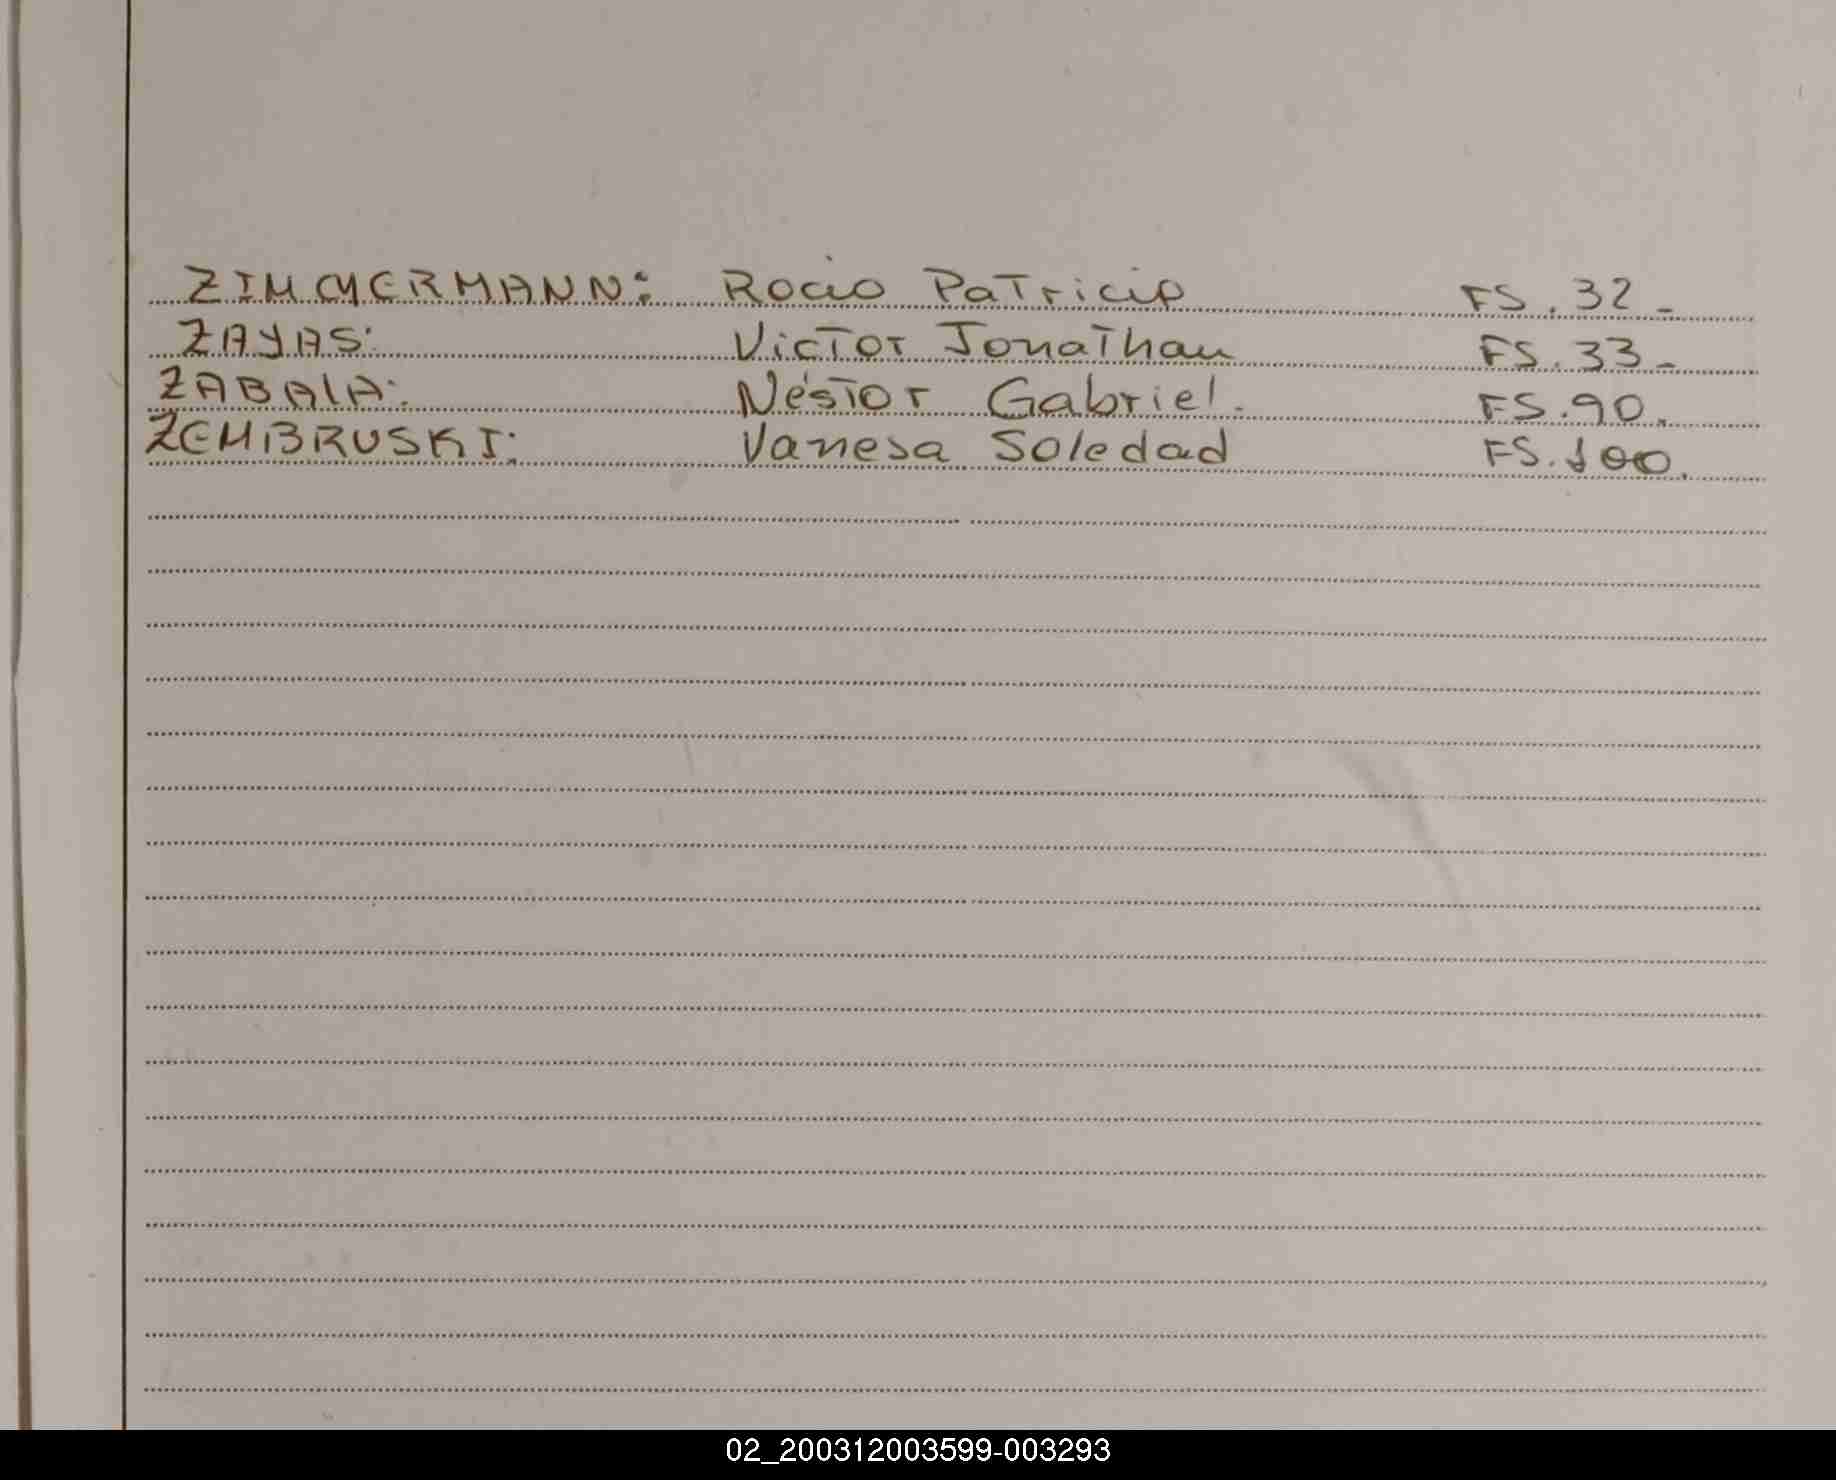 ZIMMERMANN: Rocío Patricia FS. 32_
ZAYAS: Victor Jonathan FS. 33_
ZABALA: Néstor Gabriel. FS. 90.
ZEMBRUSKI: Vanesa Soledad FS. 100.
02_200312003599-003293